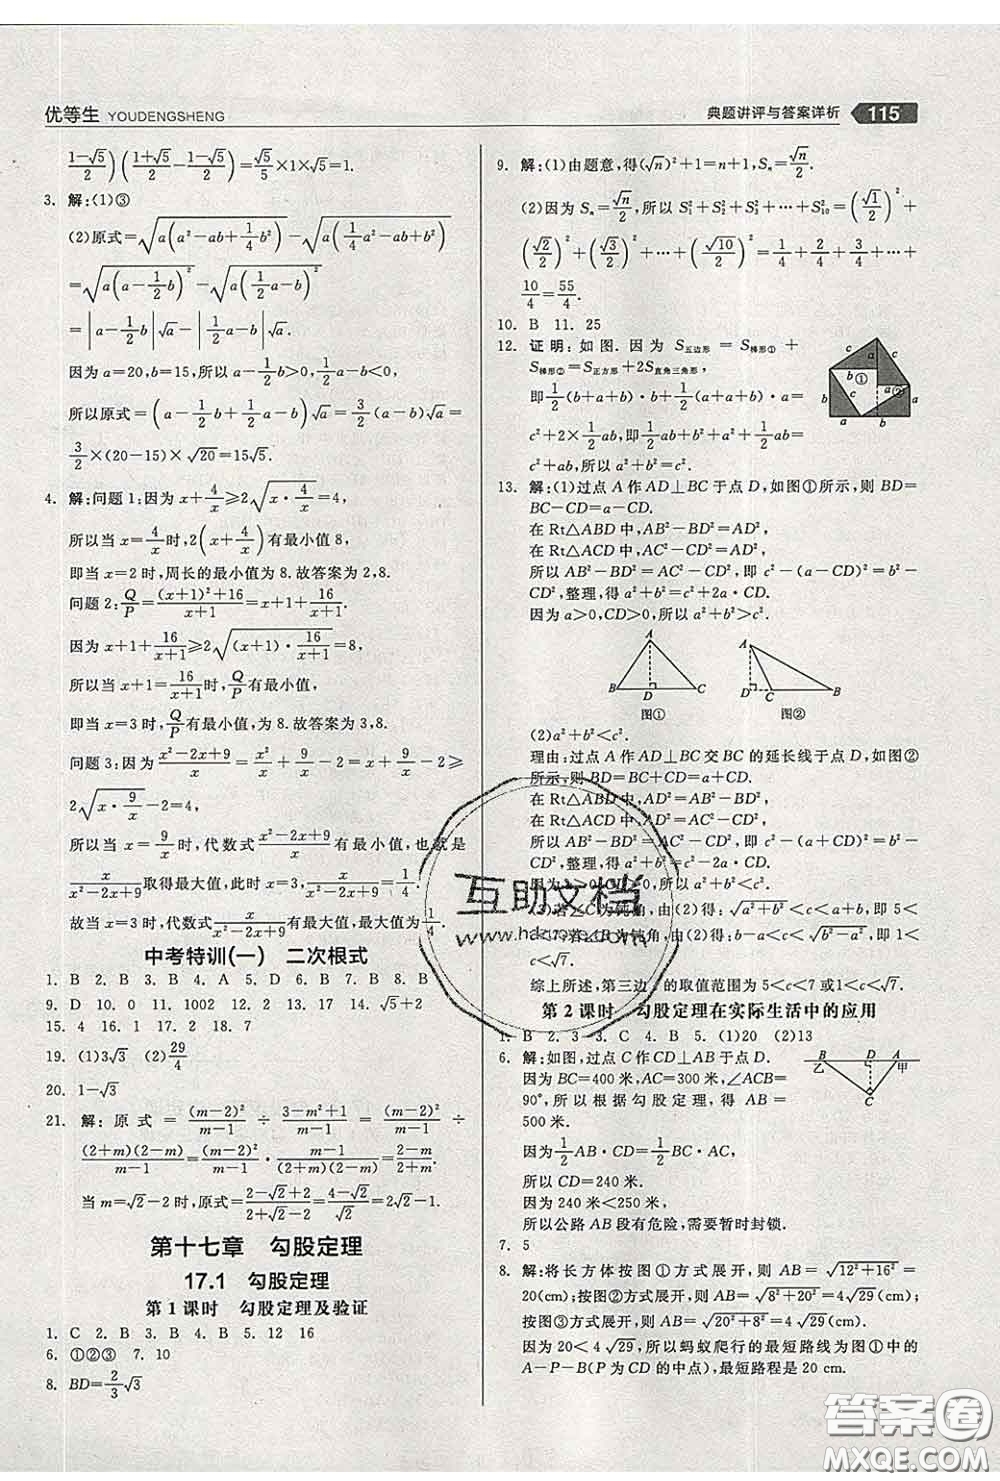 优等生 YOUDENGSHENG
典题讲评与答案详析 115
(1-√5)/2)((1+√5)/2-(1-√5)/2)=√5/5×1×√5=1.
3. 解:(1)③
(2)原式=√(a(a²-ab+1/4b²))-√(a(1/4a²-ab+b²))
=√(a(a-1/2b)²)-√(a(1/2a-b)²)
=|a-1/2b|√a-|1/2a-b|√a.
因为a=20,b=15,所以a-1/2b>0,1/2a-b<0,
所以原式=(a-1/2b+1/2a-b)√a=3/2(a-b)√a=
3/2×(20-15)×√20=15√5.
4. 解:问题1:因为x+4/x≥2√(x·4/x)=4,
所以当x=4/x时,2(x+4/x)有最小值8,
即当x=2时,周长的最小值为8.故答案为2,8.
问题2:Q/P=((x+1)²+16)/(x+1)=x+1+16/(x+1).
因为x+1+16/(x+1)≥2√((x+1)·16/(x+1))=8,
所以当x+1=16/(x+1)时,Q/P有最小值,
即当x=3时,Q/P有最小值,为8.故答案为3,8.
问题3:因为(x²-2x+9)/x=x+9/x-2=x+9/x-2≥
2√(x·9/x)-2=4,
所以当x=9/x时,代数式(x²-2x+9)/x有最小值,也就是
x/(x²-2x+9)取得最大值,此时x=3,x/(x²-2x+9)有最大值,为1/4.
中考特训(一) 二次根式
1. B 2. B 3. B 4. A 5. B 6. B 7. B 8. B
9. D 10. 0 11. 1002 12. 2 13. 2 14. √5+2
15. 4 16. 1 17. 2 18. 7
19. (1)3√3 (2)29/4
20. 1-√3
21. 解:原式=(m-2)²/(m-1)÷(3-m²+1)/(m-1)=(m-2)²/(m-1)÷
(2+m)(2-m)/(m-1)=(m-2)²/(m-1)·(m-1)/((2+m)(2-m))=(2-m)/(2+m).
当m=√2-2时,原式=(2-√2+2)/(2+√2-2)=(4-√2)/√2=2√2-1.
第十七章 勾股定理
17.1 勾股定理
第1课时 勾股定理及验证
1. C 2. B 3. B 4. B 5. 12 16
6. ①②③ 7. 10
8. BD=2/3√3
9. 解:(1)由题意,得(√n)²+1=n+1,Sₙ=√n/2.
(2)因为Sₙ=√n/2,所以S₁²+S₂²+S₃²+…+S₁₀²=(√1/2)²+
(√2/2)²+(√3/2)²+…+(√10/2)²=1/4+2/4+3/4+…+
10/4=55/4.
10. B 11. 25
12. 证明:如图.因为S五边形=S梯形①+
S梯形②=S正方形+2S直角三角形,
即1/2(b+a+b)·b+1/2(a+a+b)·a=
c²+2×1/2ab,即1/2ab+b²+a²+1/2ab=
c²+ab,所以a²+b²=c².
a c c b ① a ② b c c a a b
13. 解:(1)过点A作AD⊥BC于点D,如图①所示,则BD=
BC-CD=a-CD.
在Rt△ABD中,AB²-BD²=AD²,
在Rt△ACD中,AC²-CD²=AD²,
所以AB²-BD²=AC²-CD²,即c²-(a-CD)²=b²-
CD²,整理,得a²+b²=c²+2a·CD.
因为a>0,CD>0,所以a²+b²>c².
A B D C 图①
A D C B 图②
(2)a²+b²<c².
理由:过点A作AD⊥BC交BC的延长线于点D,如图②
所示,则BD=BC+CD=a+CD.
在Rt△ABD中,AB²-BD²=AD²,
在Rt△ACD中,AC²-CD²=AD²,
所以AB²-BD²=AC²-CD²,即c²-(a+CD)²=b²-
CD²,整理,得a²+b²=c²-2a·CD.
综上所述,第三边c的取值范围为5<c<7或1<c<√7.
第2课时 勾股定理在实际生活中的应用
1. B 2. 3 3. C 4. B 5. (1)20 (2)13
6. 解:如图,过点C作CD⊥AB于点D.
因为BC=400米,AC=300米,∠ACB=
90°,所以根据勾股定理,得AB=
500米.
因为1/2AB·CD=1/2BC·AC,
所以CD=240米.
因为240米<250米,
所以公路AB段有危险,需要暂时封锁.
B D A 乙 甲 C
7. 5
8. 解:将长方体按图①方式展开,则AB=√(12²+16²)=
20(cm);按图②方式展开,则AB=√(8²+20²)=4√29(cm);
按图③方式展开,则AB=√(20²+8²)=4√29(cm).
因为20<4√29,所以蚂蚁爬行的最短路线为图①中的
A-P-B(P为CD的中点),最短路程是20 cm.
互助文档
答案圈
MXQE.COM